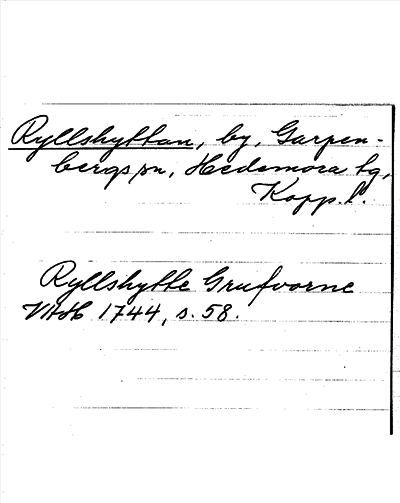 Ryllshyttan, by, Garpen-
bergs sn, Hedemora tg,
Kopp. l.
Ryllshytte Grufvorne
VAH 1744, s. 58.